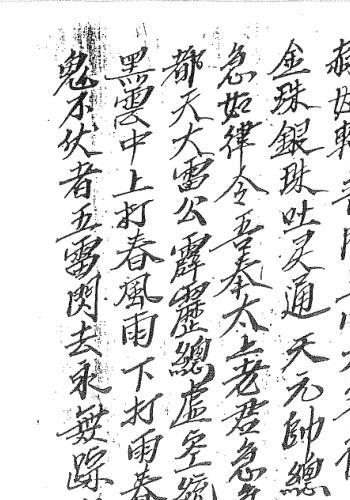 赤齿輪
金珠銀珠吐灵通天元帥總
急如律令吾奉太上老君急
都天大雷公霹靂總虚空統
黑雲中上打春風雨下打雨春
鬼不伏者五雷閃去永無踪